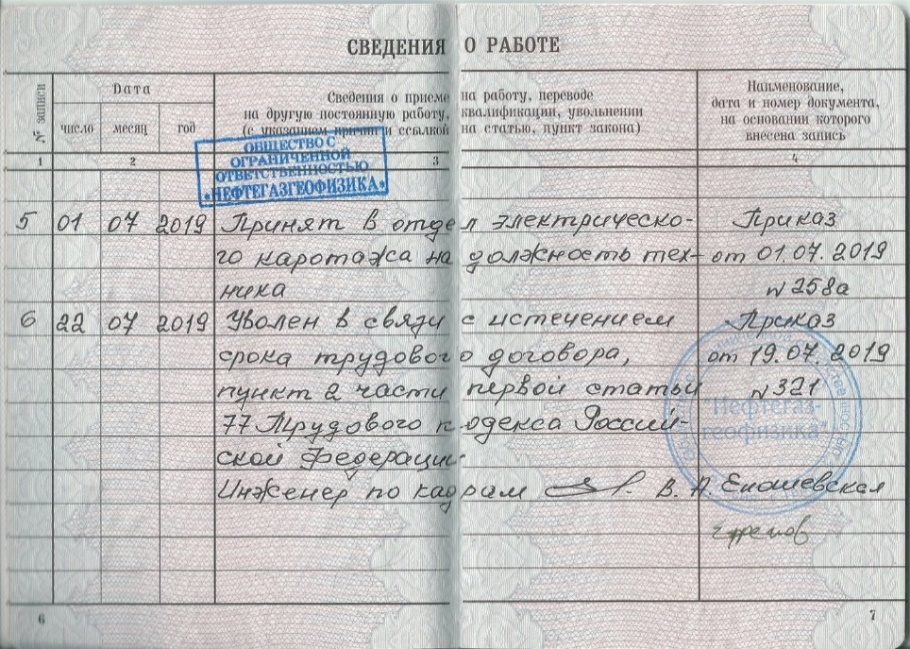 СВЕДЕНИЯ О РАБОТЕ
№ записи
Дата
число месяц год
Сведения о приеме на работу, переводе
на другую постоянную работу, квалификации, увольнении
(с указанием причин и ссылкой на статью, пункт закона)
Наименование,
дата и номер документа,
на основании которого
внесена запись
1 2 3 4
ОБЩЕСТВО С
ОГРАНИЧЕННОЙ
ОТВЕТСТВЕННОСТЬЮ
«НЕФТЕГАЗГЕОФИЗИКА»
5 01 07 2019 Принят в отдел электрическо- Приказ
го каротажа на должность тех- от 01.07.2019
ника № 258а
6 22 07 2019 Уволен в связи с истечением Приказ
срока трудового договора, от 19.07.2019
пункт 2 части первой статьи № 321
77 Трудового кодекса Россий-
ской Федерации.
"Нефтегаз-
геофизика"
Инженер по кадрам В. А. Епошевская
6 7